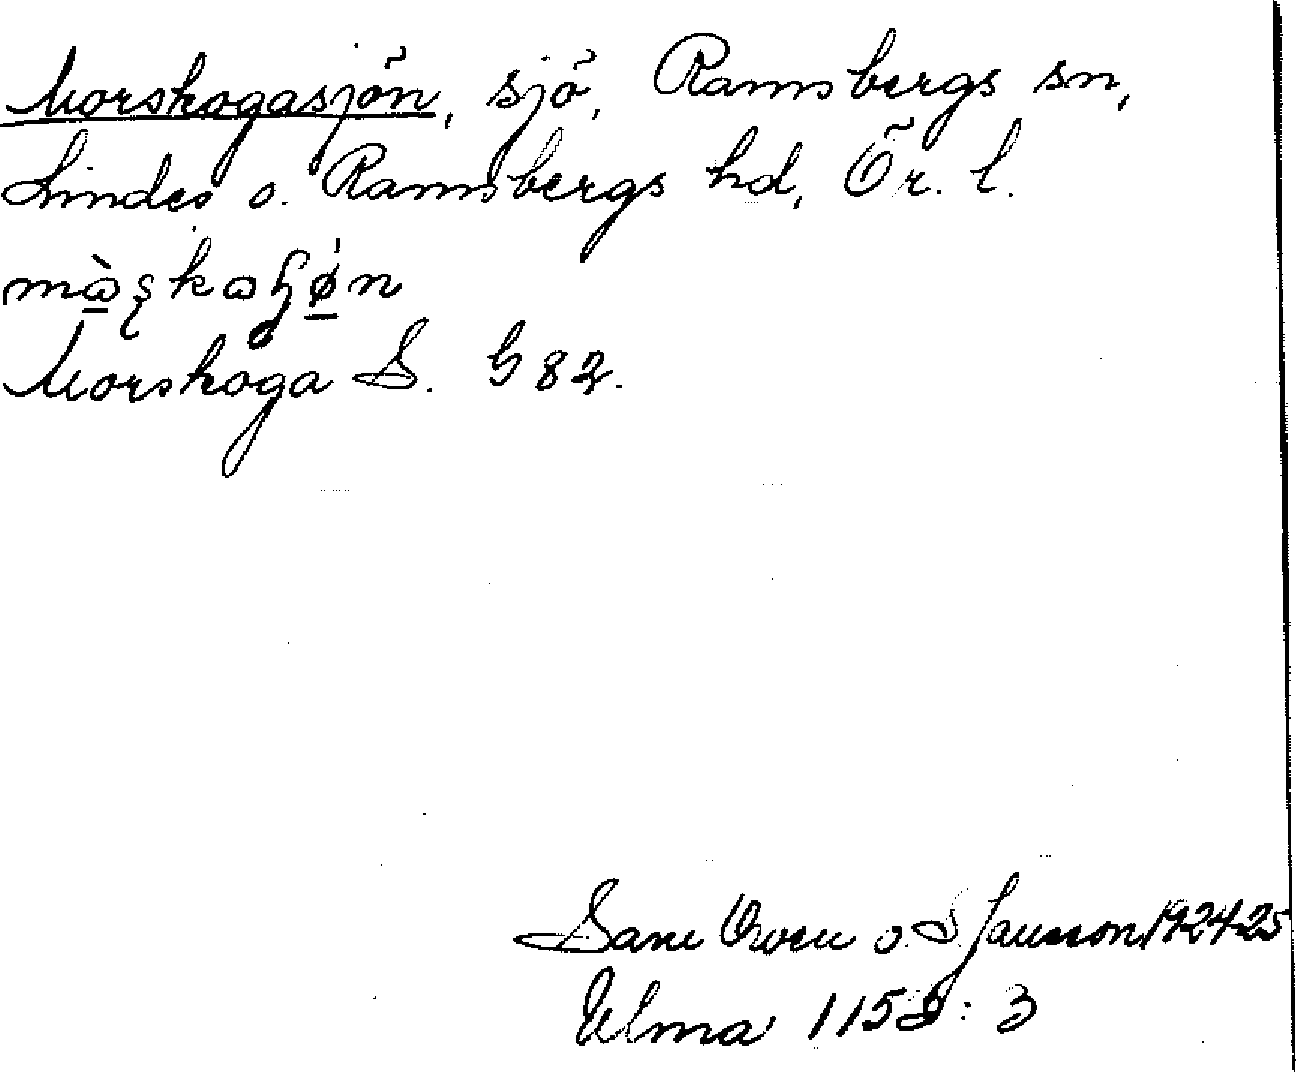 Morskogasjön, sjö, Ramsbergs sn,
Lindes o. Ramsbergs hd, Ör. l.
Morskoga S. G 82.
Sam Owen o. S. Jansson 1924-25
Ulma 1155: 3